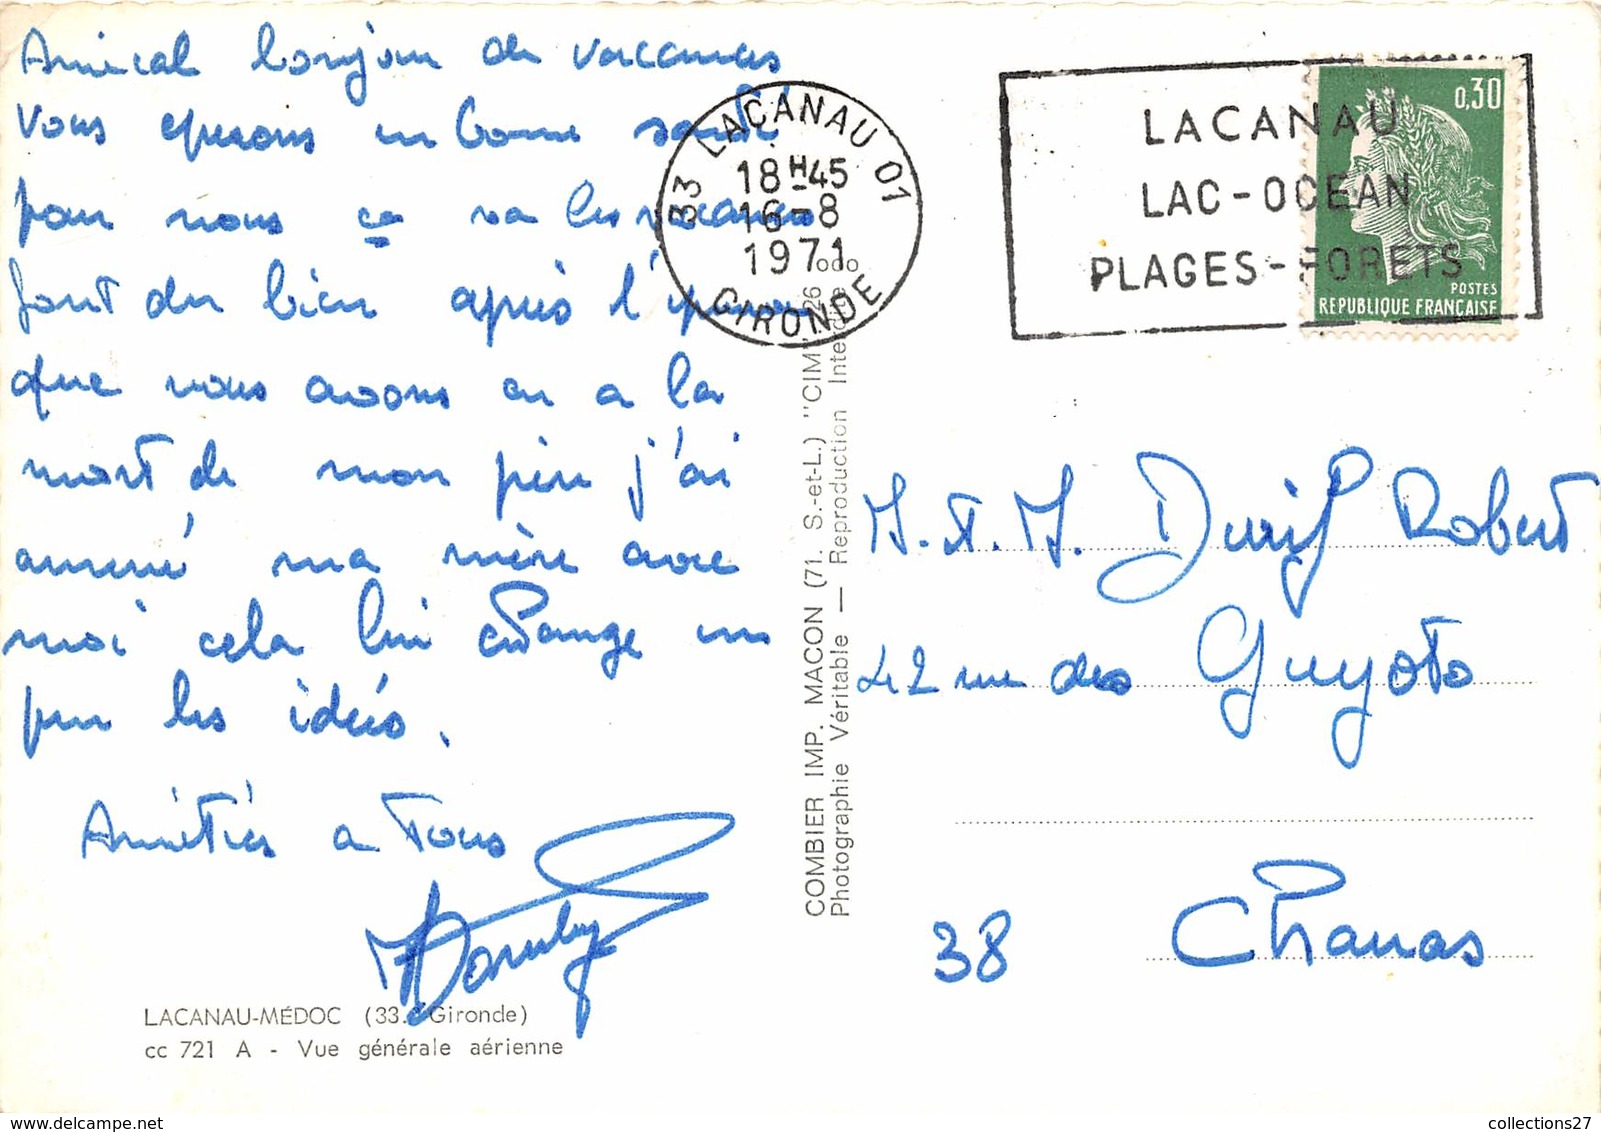 Amical bonjour de vacances
Vous esperons en bonne santé
pour nous ça va les vacances
font du bien après l'épreuve
que nous avons eu a la
mort de mon père j'ai
ammené ma mère avec
moi cela lui change un
peu les idées.
Amitiés a Tous
LACANAU-MÉDOC (33. Gironde)
cc 721 A - Vue générale aérienne
COMBIER IMP. MACON (71. S.-et-L.) "CIM"
Photographie Véritable — Reproduction Interdite
33 LACANAU 01
18H45
16-8
1971
GIRONDE
LACANAU
LAC-OCEAN
PLAGES-FORETS
0,30
POSTES
REPUBLIQUE FRANÇAISE
Robert
42 rue des Guyots
38 Chanas
collections27